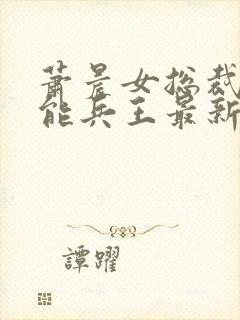 萧晨女总裁
能兵王最新
譚躍